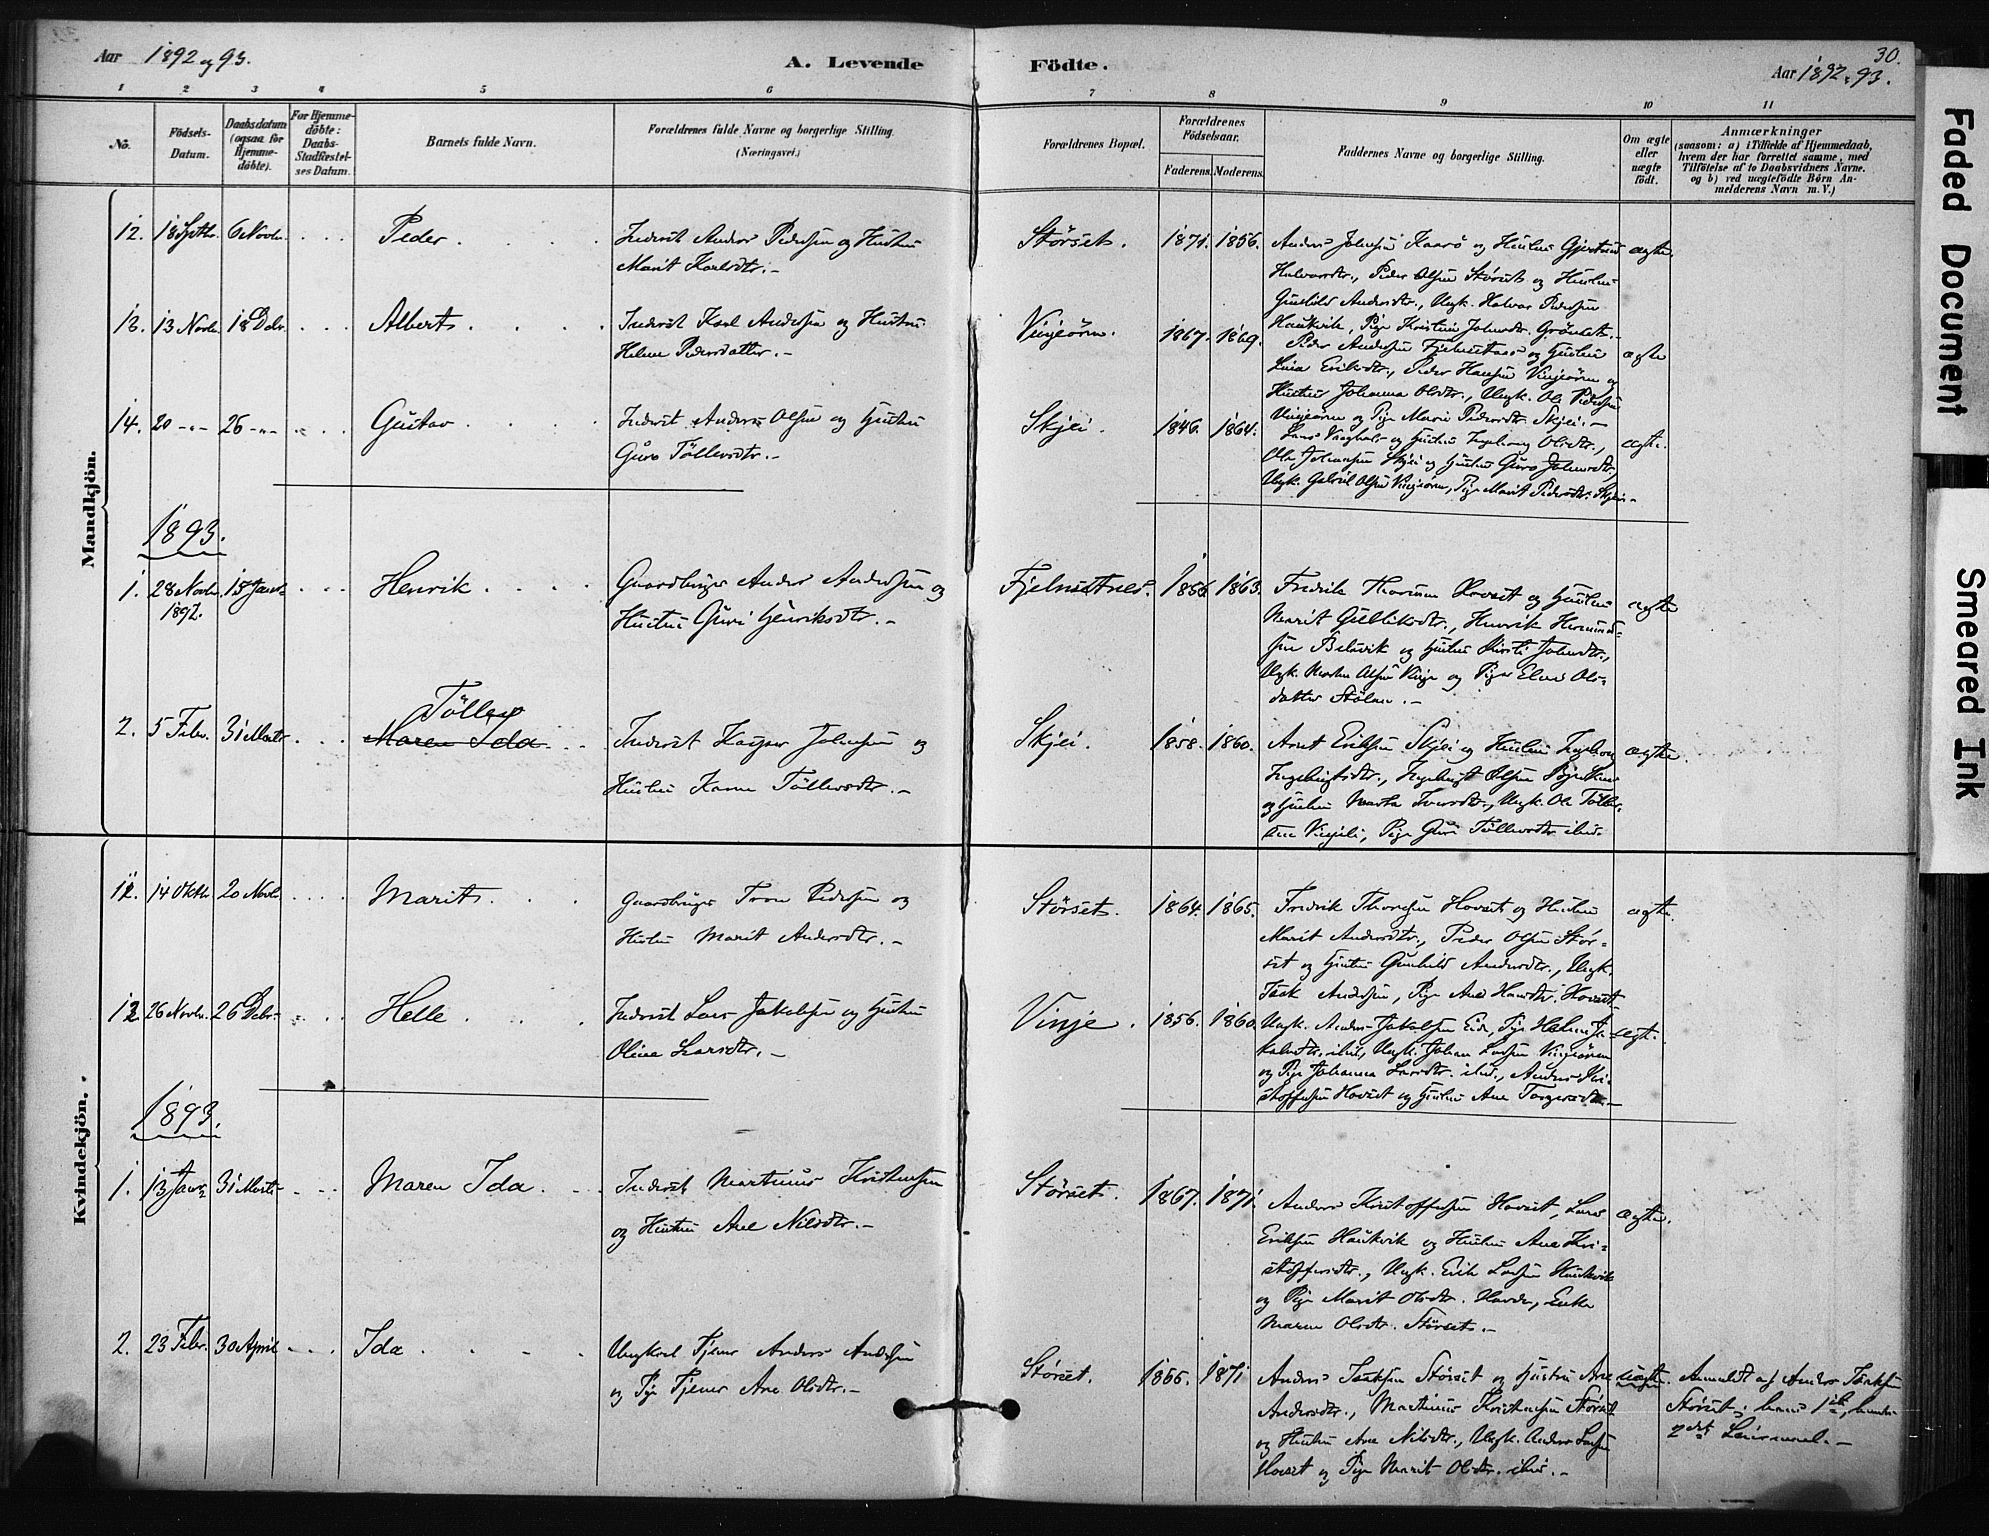 Aar 1892 og 93.
A. Levende Födte.
30.
Aar 1892 93.
1 2 3 4 5 6 7 8 9 10 11
No.
Födsels-Datum.
Daabsdatum (ogsaa for Hjemme-döbte).
For Hjemme-döbte: Daabs-Stadfæstel-ses Datum.
Barnets fulde Navn.
Forældrenes fulde Navne og borgerlige Stilling.
(Næringsvei.)
Forældrenes Bopæl.
Forældrenes Födselsaar.
Faderens. Moderens.
Faddernes Navne og borgerlige Stilling.
Om ægte eller uægte födt.
Anmærkninger
(saasom: a) i Tilfælde af Hjemmedaab,
hvem der har forrettet samme, med
Tilföielse af to Daabsvidners Navne.
og b) ved uægtefödte Börn An-
melderens Navn m. V.)
Mandkjön.
12. 18 Septbr. 6 Novbr. Peder. Inderst Anders Pedersen og Hustru
Marit Karlsdtr.-
Störset. 1871. 1856. Anders Johnsen Kaarö og Hustru Gjertrud ægte.
Halvorsdtr., Peder Olsen Störset og Hustru
Gunhild Andersdtr., Ungk. Halvor Pedersen
Haukvik, Pige Kristine Johnsdtr. Grönset.-
13. 13 Novbr. 18 Debr. Albert. Inderst Karl Andersen og Hustru
Helene Pedersdatter.-
Vinjeören. 1867. 1869. Peder Andersen Fjelnsetnes og Hustru ægte
Lina Eriksdtr., Peder Hansen Vinjeören og
Hustru Johanna Olsdtr., Ungk. Ole Pedersen
Vinjeören og Pige Marie Pedersdtr. Skjei.-
14. 20 -"- 26 -"- Gustav. Inderst Anders Olsen og Hustru
Guro Töllevsdtr.-
Skjei. 1846. 1864. Lars og Hustru Ingeborg Olsdtr., ægte.
Ole Johansen Skjei og Hustru Guro Johnsdtr,
Ungk. Gabriel Olsen Vinjeören, Pige Marit Pedersdtr. Skjei-
1893.
1. 28 Novbr. 1892. 15 Janr. Henrik. Gaardbruger Anders Andersen og
Hustru Guri Henriksdtr.-
Fjelnsetnes. 1856 1863. Fredrik Thoresen Hovset og Hustru ægte
Marit, Henrik
Belsvik og Hustru Kirsti Johnsdtr.,
Ungk. Olsen Vinje og Pige Ols-
datter Stölen.-
2. 5 Febr. 31 Marts Töllev
Maren Ida Inderst Kasper Johnsen og
Hustru Karen Töllevsdtr.-
Skjei. 1858. 1860. Arnt Eriksen Skjei og Hustru Ingeborg ægte.
Ingebrigtsdtr., Ingebrigt Olsen
og Hustru Marta Iversdtr., Ungk. Ole Töllev-
sen Vinjeli, Pige Guri Töllevsdtr. ibid.
Kvindekjön.
11. 14 Oktbr. 20 Novbr. Marit. Gaardbruger Tron Pedersen og
Hustru Marit Andersdtr.-
Störset. 1864. 1865. Fredrik Thoresen Hovset og Hustru ægte.
Marit Andersdtr., Peder Olsen Stör-
set og Hustru Gunhild Andersdtr., Ungk.
Andersen, Pige Ane Hansdtr. Hovset.
12 26 Novbr. 26 Debr. Helle. Inderst Lars Jakobsen og Hustru
Oline Larsdtr.-
Vinje. 1856. 1860. Ungk. Anders Jakobsen Eide, Pige Helene Ja- ægte.
kobsdtr. ibid, Ungk. Johan Larsen Vinjeören
og Pige Johanna Larsdtr. ibid., Anders Kri-
stoffersen Hovset og Hustru Ane Torgersdtr.-
1893.
1. 13 Janr. 31 Marts Maren Ida. Inderst Martinus Kristensen
og Hustru Ane Nilsdtr.-
Störset. 1867. 1871. Anders Kristoffersen Hovset, Lars ægte.
Eriksen Haukvik og Hustru Ane Kri-
stoffersdtr., Ungk. Erik Larsen Haukvik
og Pige Marit Olsdtr. Enke
Maren Olsdtr. Störset.-
2. 23 Febr. 30 April Ida. Ungkarl Tjener Anders Andersen
og Pige Tjener Ane Olsdtr.-
Störset. 1866. 1871 Anders Störset og Hustru Ane uægte.
Andersdtr., Martinus Kristensen Störset
og Hustru Ane Nilsdtr., Ungk. Anders Larsen
Hovset og Pige Marit Olsdtr. ibid.-
Anmeldt af Anders
Störset; hans 1ste, hendes
2det Leiermaal.-
Faded Document
Smeared Ink